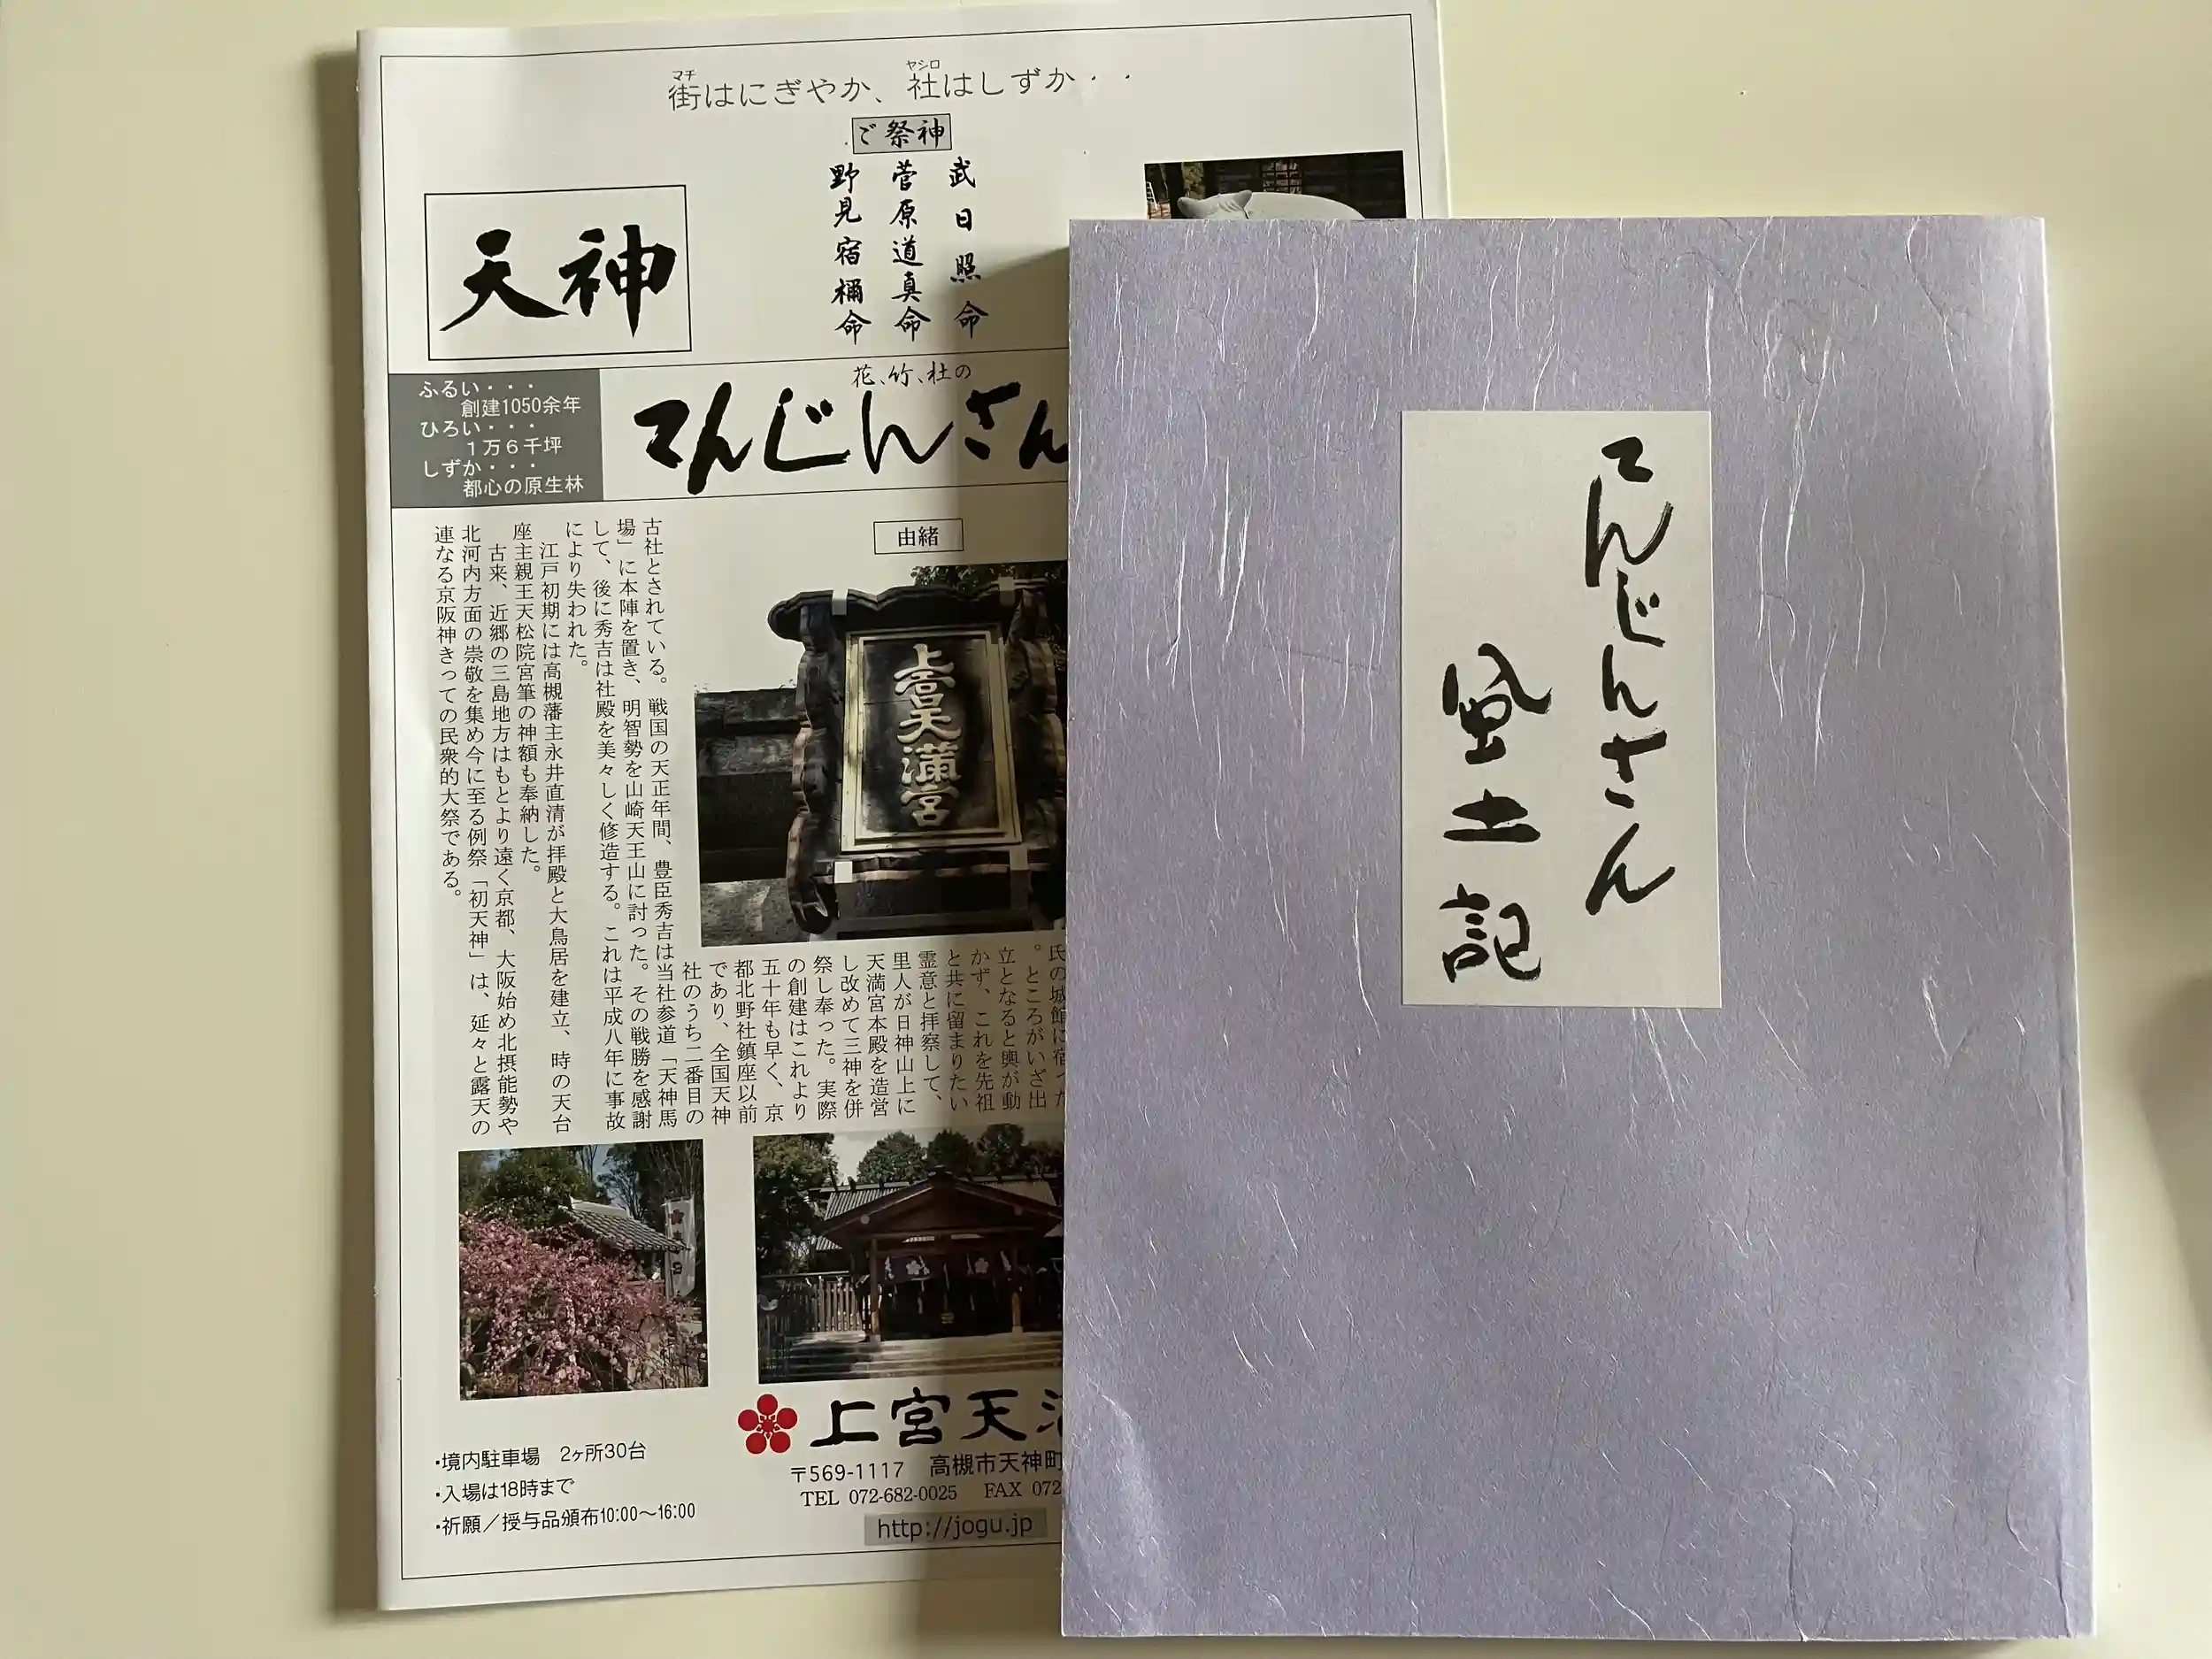 街はにぎやか、社はしずか・・
マチ
ヤシロ
ご祭神
武日照命
菅原道真命
野見宿禰命
天神
ふるい・・・
創建1050余年
ひろい・・・
1万6千坪
しずか・・・
都心の原生林
花、竹、杜の
てんじんさん
由緒
上宮天満宮
氏の城館に宿った
。ところがいざ出
立となると輿が動
かず、これを先祖
と共に留まりたい
霊意と拝察して、
里人が日神山上に
天満宮本殿を造営
し改めて三神を併
祭し奉った。実際
の創建はこれより
五十年も早く、京
都北野社鎮座以前
であり、全国天神
社のうち二番目の
古社とされている。戦国の天正年間、豊臣秀吉は当社参道「天神馬
場」に本陣を置き、明智勢を山崎天王山に討った。その戦勝を感謝
して、後に秀吉は社殿を美々しく修造する。これは平成八年に事故
により失われた。
江戸初期には高槻藩主永井直清が拝殿と大鳥居を建立、時の天台
座主親王天松院宮筆の神額も奉納した。
古来、近郷の三島地方はもとより遠く京都、大阪始め北摂能勢や
北河内方面の崇敬を集め今に至る例祭「初天神」は、延々と露天の
連なる京阪神きっての民衆的大祭である。
上宮天
〒569-1117 高槻市天神町
TEL 072-682-0025 FAX 072
http://jogu.jp
・境内駐車場 2ヶ所30台
・入場は18時まで
・祈願／授与品頒布10:00～16:00
てんじんさん
風土記